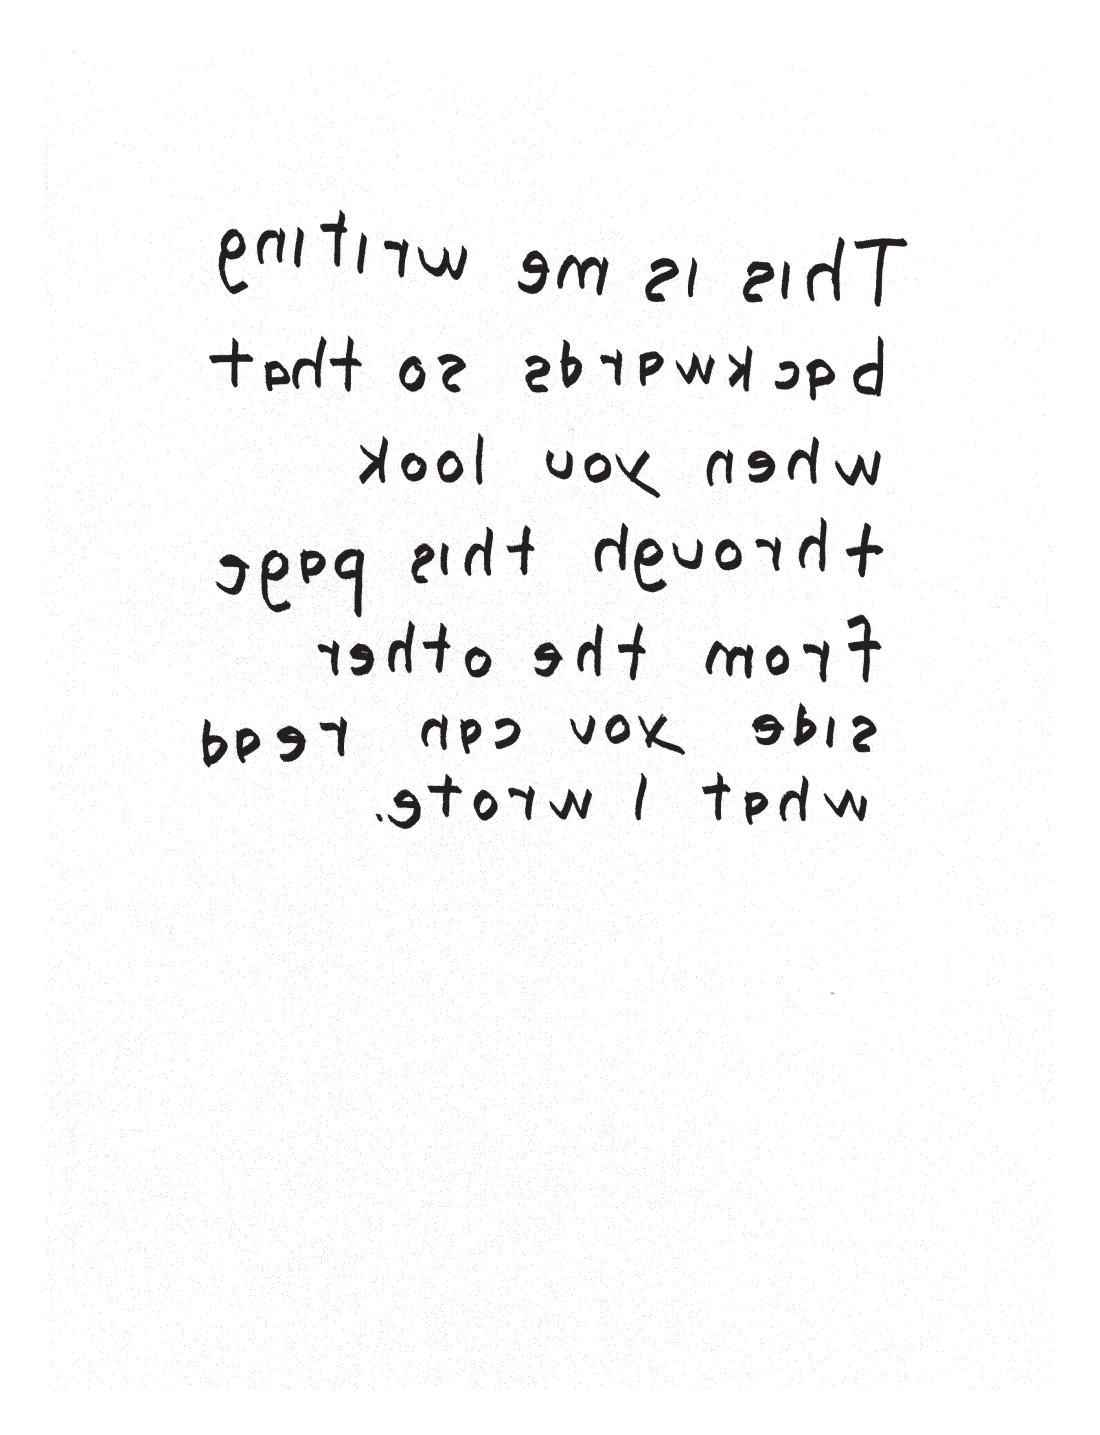 This is me writing
backwards so that
when you look
through this page
from the other
side you can read
what I wrote.